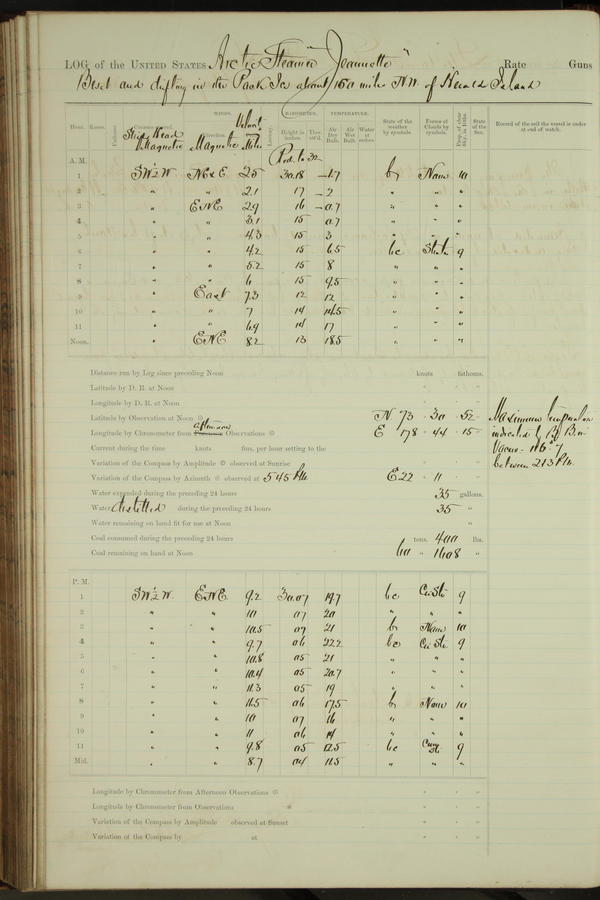 LOG of the UNITED STATES Arctic Steamer "Jeannette" Rate Guns
Beset and drifting in the Pack Ice about 150 miles N.W. of Herald Island
Hour. Knots. Fathoms. WINDS. BAROMETER. TEMPERATURE. State of the weather by symbols. Forms of Clouds by symbols. Prop. of clear Sky, in 10ths. State of the Sea. Record of the sail the vessel is under at end of watch.
Ship's Head Magnetic Magnetic Velocity Miles Height in inches. Ther. att'd. Air Dry Bulb. Air Wet Bulb. Water at surface.
A. M. Red. to 32
1 SW½W NE 2.5 30.18 -1.7 b None 10
2 " " 2.1 17 -2 " " "
3 " ENE 2.9 16 -0.7 " " "
4 " " 3.1 15 0.7 " " "
5 " " 4.3 15 3 " " "
6 " " 4.2 15 6.5 bc Strata 9
7 " " 5.2 15 8 " " "
8 " " 6 15 9.5 " " "
9 " East 7.3 12 12 " " "
10 " " 7 14 14.5 " " "
11 " " 6.9 14 17 " " "
Noon. " ENE 8.2 13 18.5 " " "
Distance run by Log since preceding Noon knots fathoms.
Latitude by D. R. at Noon
Longitude by D. R. at Noon
Latitude by Observation at Noon N 73 30 52
Longitude by Chronometer from afternoon Observations E 178 44 15
Current during the time knots fms. per hour setting to the
Variation of the Compass by Amplitude observed at Sunrise
Variation of the Compass by Azimuth observed at 5 45 PM E 22 11
Water expended during the preceding 24 hours 35 gallons.
Water distilled during the preceding 24 hours 35 "
Water remaining on hand fit for use at Noon "
Coal consumed during the preceding 24 hours tons. 400 lbs.
Coal remaining on hand at Noon 60 " 1608 "
Maximum temperature
indicated by
Vacuo - 116°.7
between 2 & 3 P.M.
P. M.
1 SW½W. ENE 9.2 30.07 19.7 bc Cir St 9
2 " " 10 07 20 " " "
3 " " 10.5 07 21 b None 10
4 " " 9.7 06 22.2 bc Cir St. 9
5 " " 10.8 05 21 " " "
6 " " 10.4 05 20.7 " " "
7 " " 11.3 05 19 " " "
8 " " 11.5 06 17.5 b None 10
9 " " 10 07 16 " " "
10 " " 11 06 14 " " "
11 " " 9.8 05 12.5 bc Cum St 9
Mid. " " 8.7 04 11.5 " " "
Longitude by Chronometer from Afternoon Observations
Longitude by Chronometer from Observations
Variation of the Compass by Amplitude observed at Sunset
Variation of the Compass by at